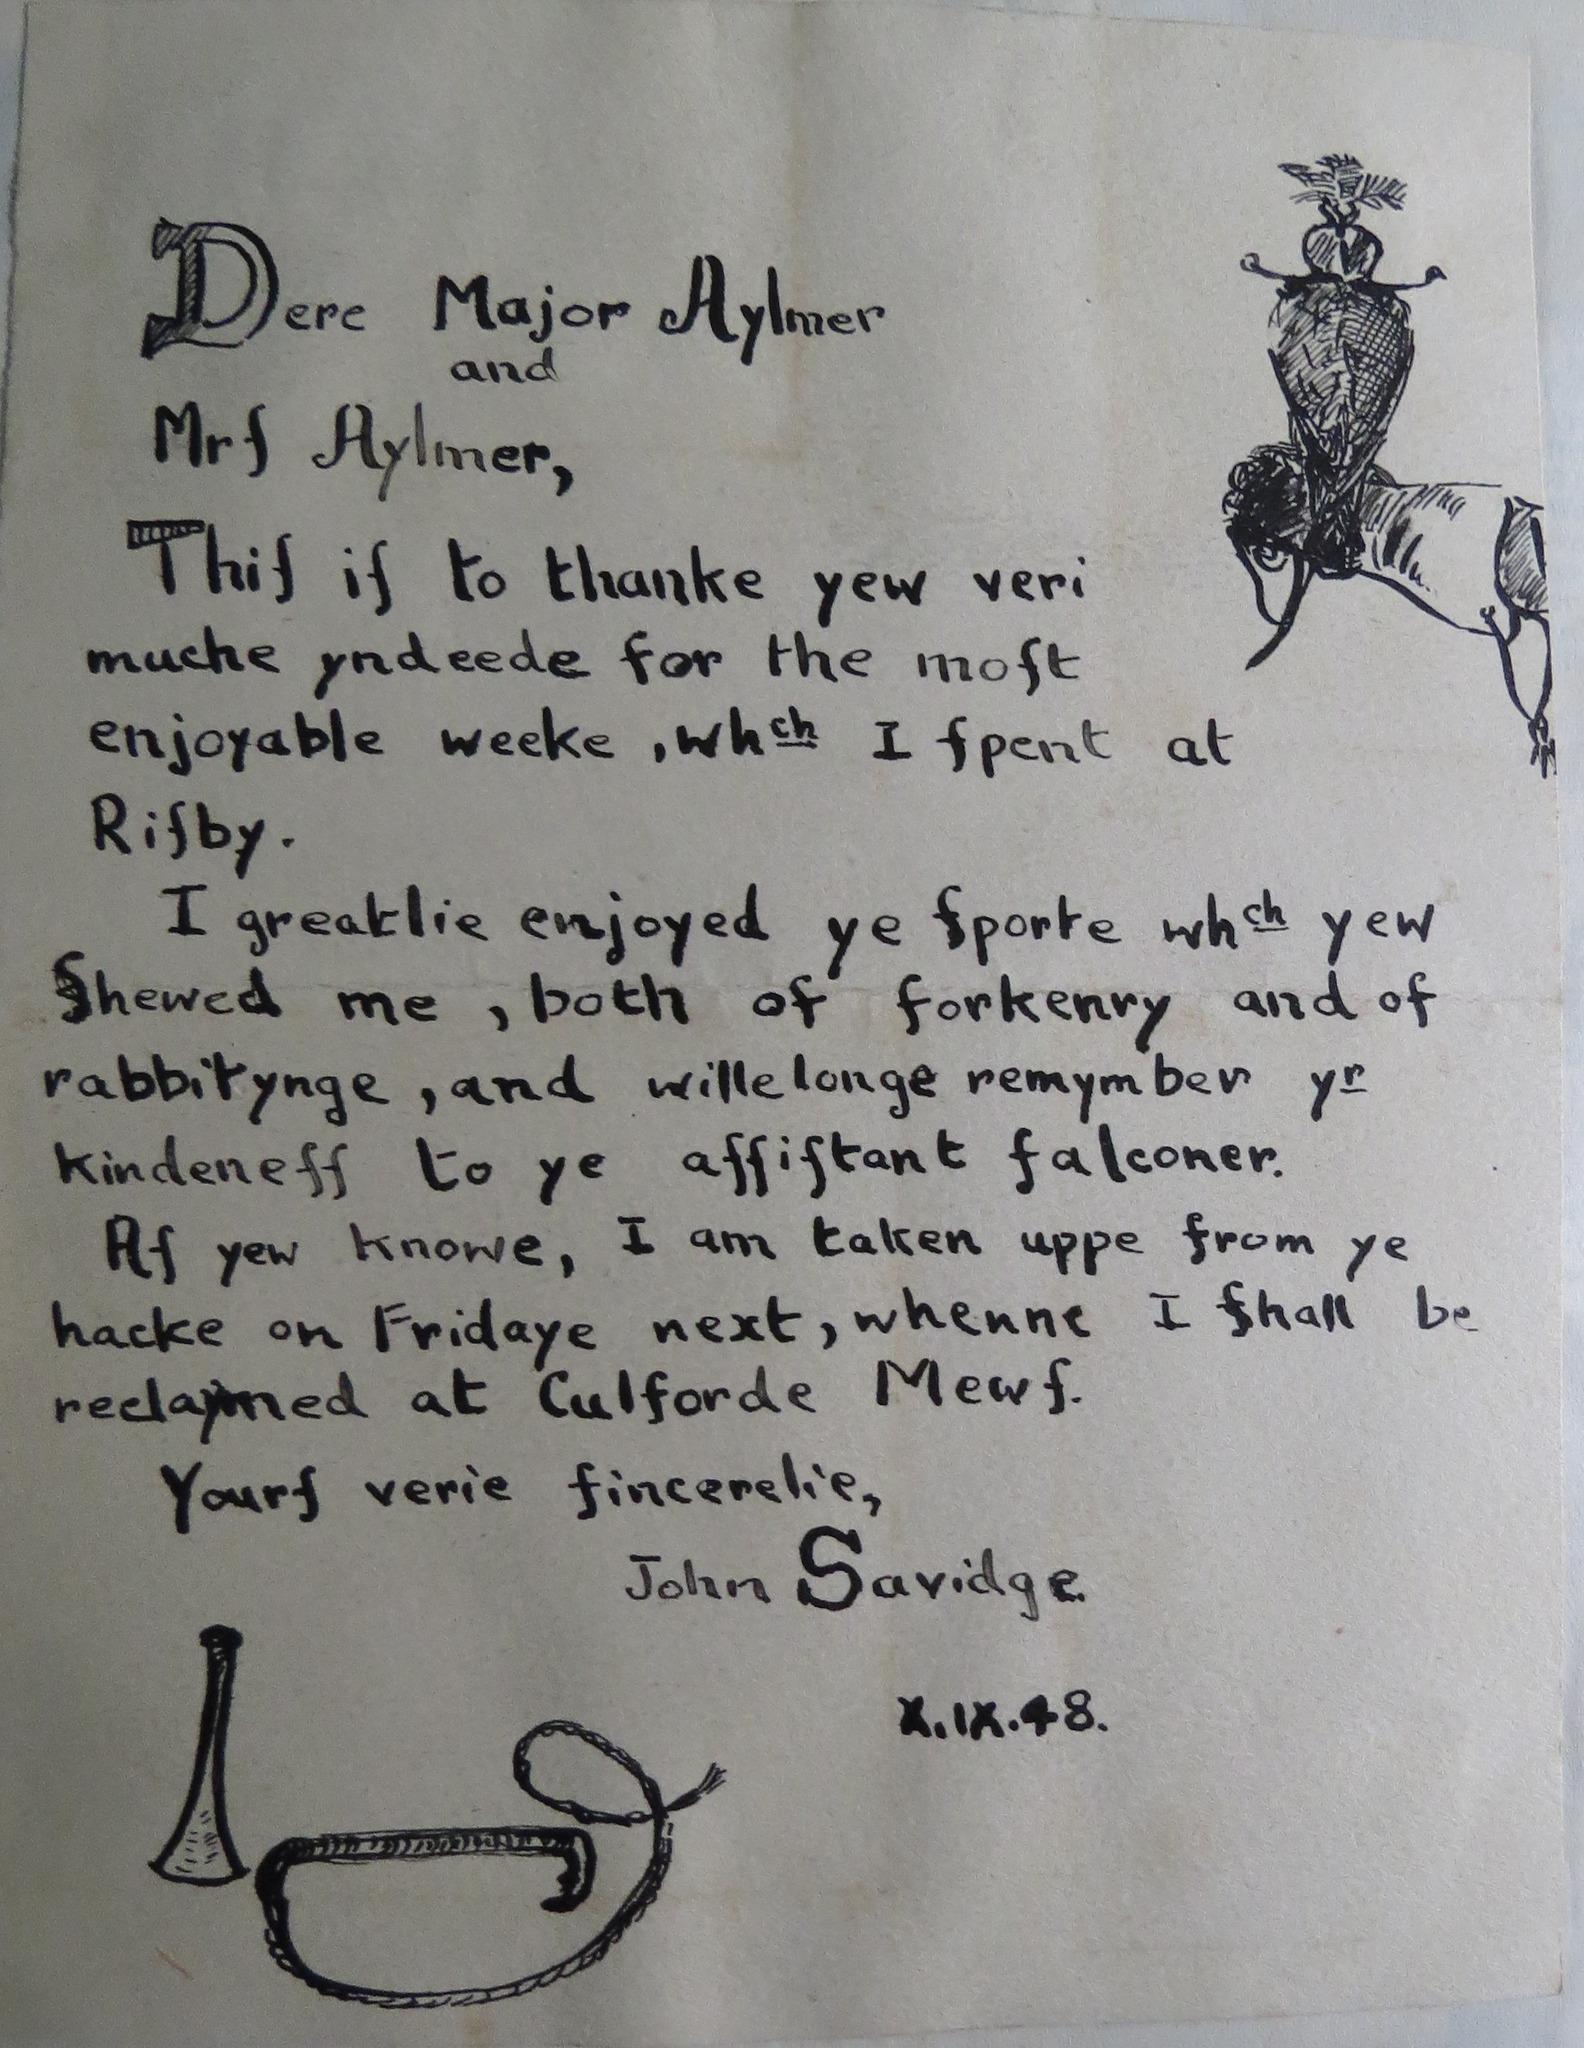 Dere Major Aylmer
and
Mrſ Aylmer,
Thiſ iſ to thanke yew veri
muche yndeede for the moſt
enjoyable weeke, whch I ſpent at
Riſby.
I greatlie enjoyed ye ſporte whch yew
ſhewed me, both of forkenry and of
rabbitynge, and wille longe remymber yr
kindeneſſ to ye aſſiſtant falconer.
Aſ yew knowe, I am taken uppe from ye
hacke on Fridaye next, whenne I ſhall be
reclaymed at Culforde Mewſ.
Yourſ verie ſincerelie,
John Savidge
X.IX.48.